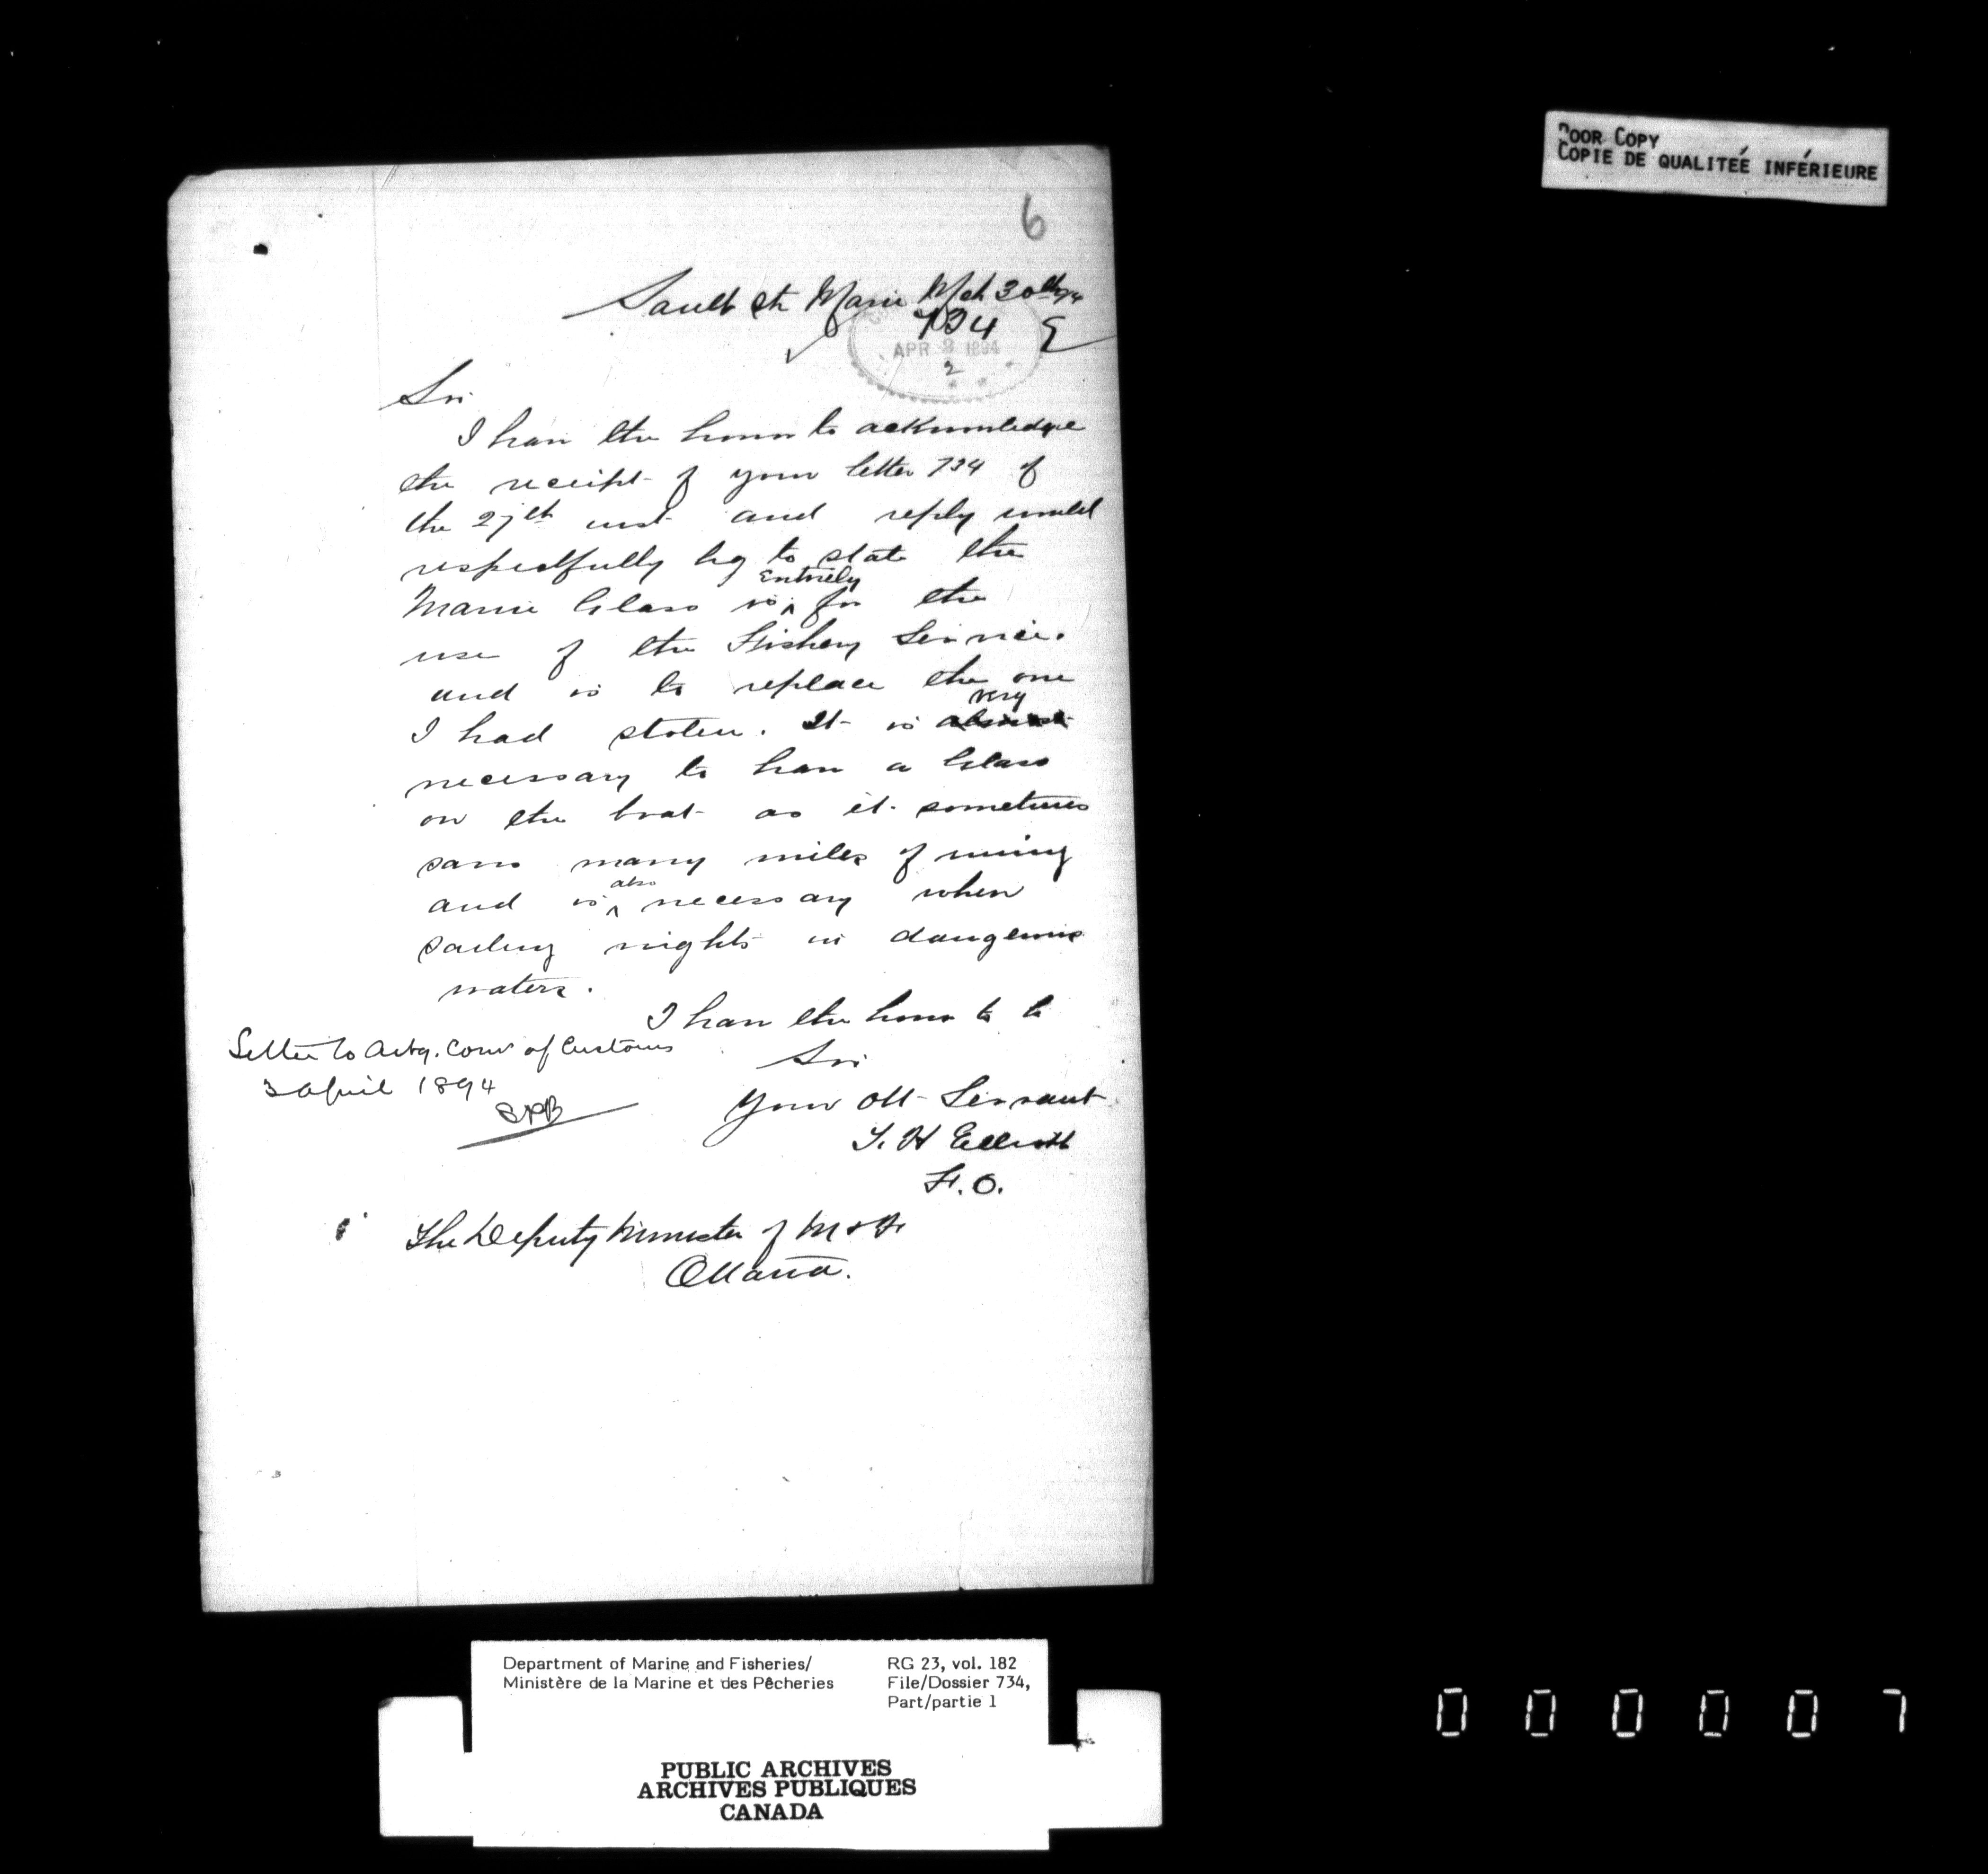 POOR COPY
COPIE DE QUALITEÉ INFÉRIEURE
6
Sault Ste Marie Mch 30th 94
734 E
APR 2 1894
2
Sir
I have the honor to acknowledge
the receipt of your letter 734 of
the 27th inst and reply would
respectfully beg to state the
entirely
Marine Glass is ^ for the
use of the Fishery Service.
and is to replace the one
very
I had stolen. It is almost
necessary to have a Glass
on the boat as it sometimes
saves many miles of
also
and is ^ necessary when
sailing nights in dangerous
waters.
I have the honor to be
Letter to Actg. Comr of Customs
Sir
3 April 1894
Your Obt Servant
T. H Elliott
F. O.
The Deputy Minister of M & F
Ottawa.
Department of Marine and Fisheries/
Ministère de la Marine et des Pêcheries
RG 23, vol. 182
File/Dossier 734,
Part/partie 1
PUBLIC ARCHIVES
ARCHIVES PUBLIQUES
CANADA
0 0 0 0 0 7